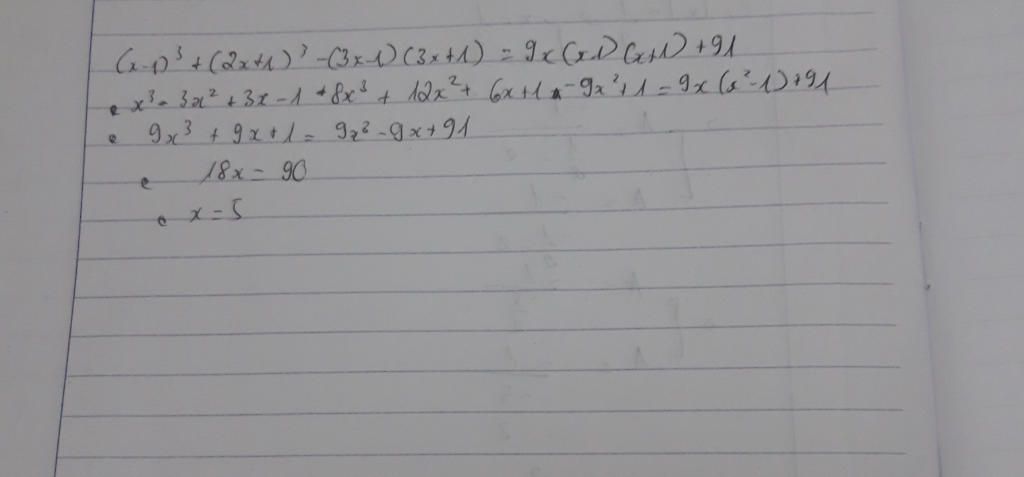 (x-1)³ + (2x+1)³ - (3x-1)(3x+1) = 9x(x-1)(x+1) + 91
x³ - 3x² + 3x - 1 + 8x³ + 12x² + 6x + 1 - 9x² + 1 = 9x(x²-1) + 91
9x³ + 9x + 1 = 9x³ - 9x + 91
18x = 90
x = 5